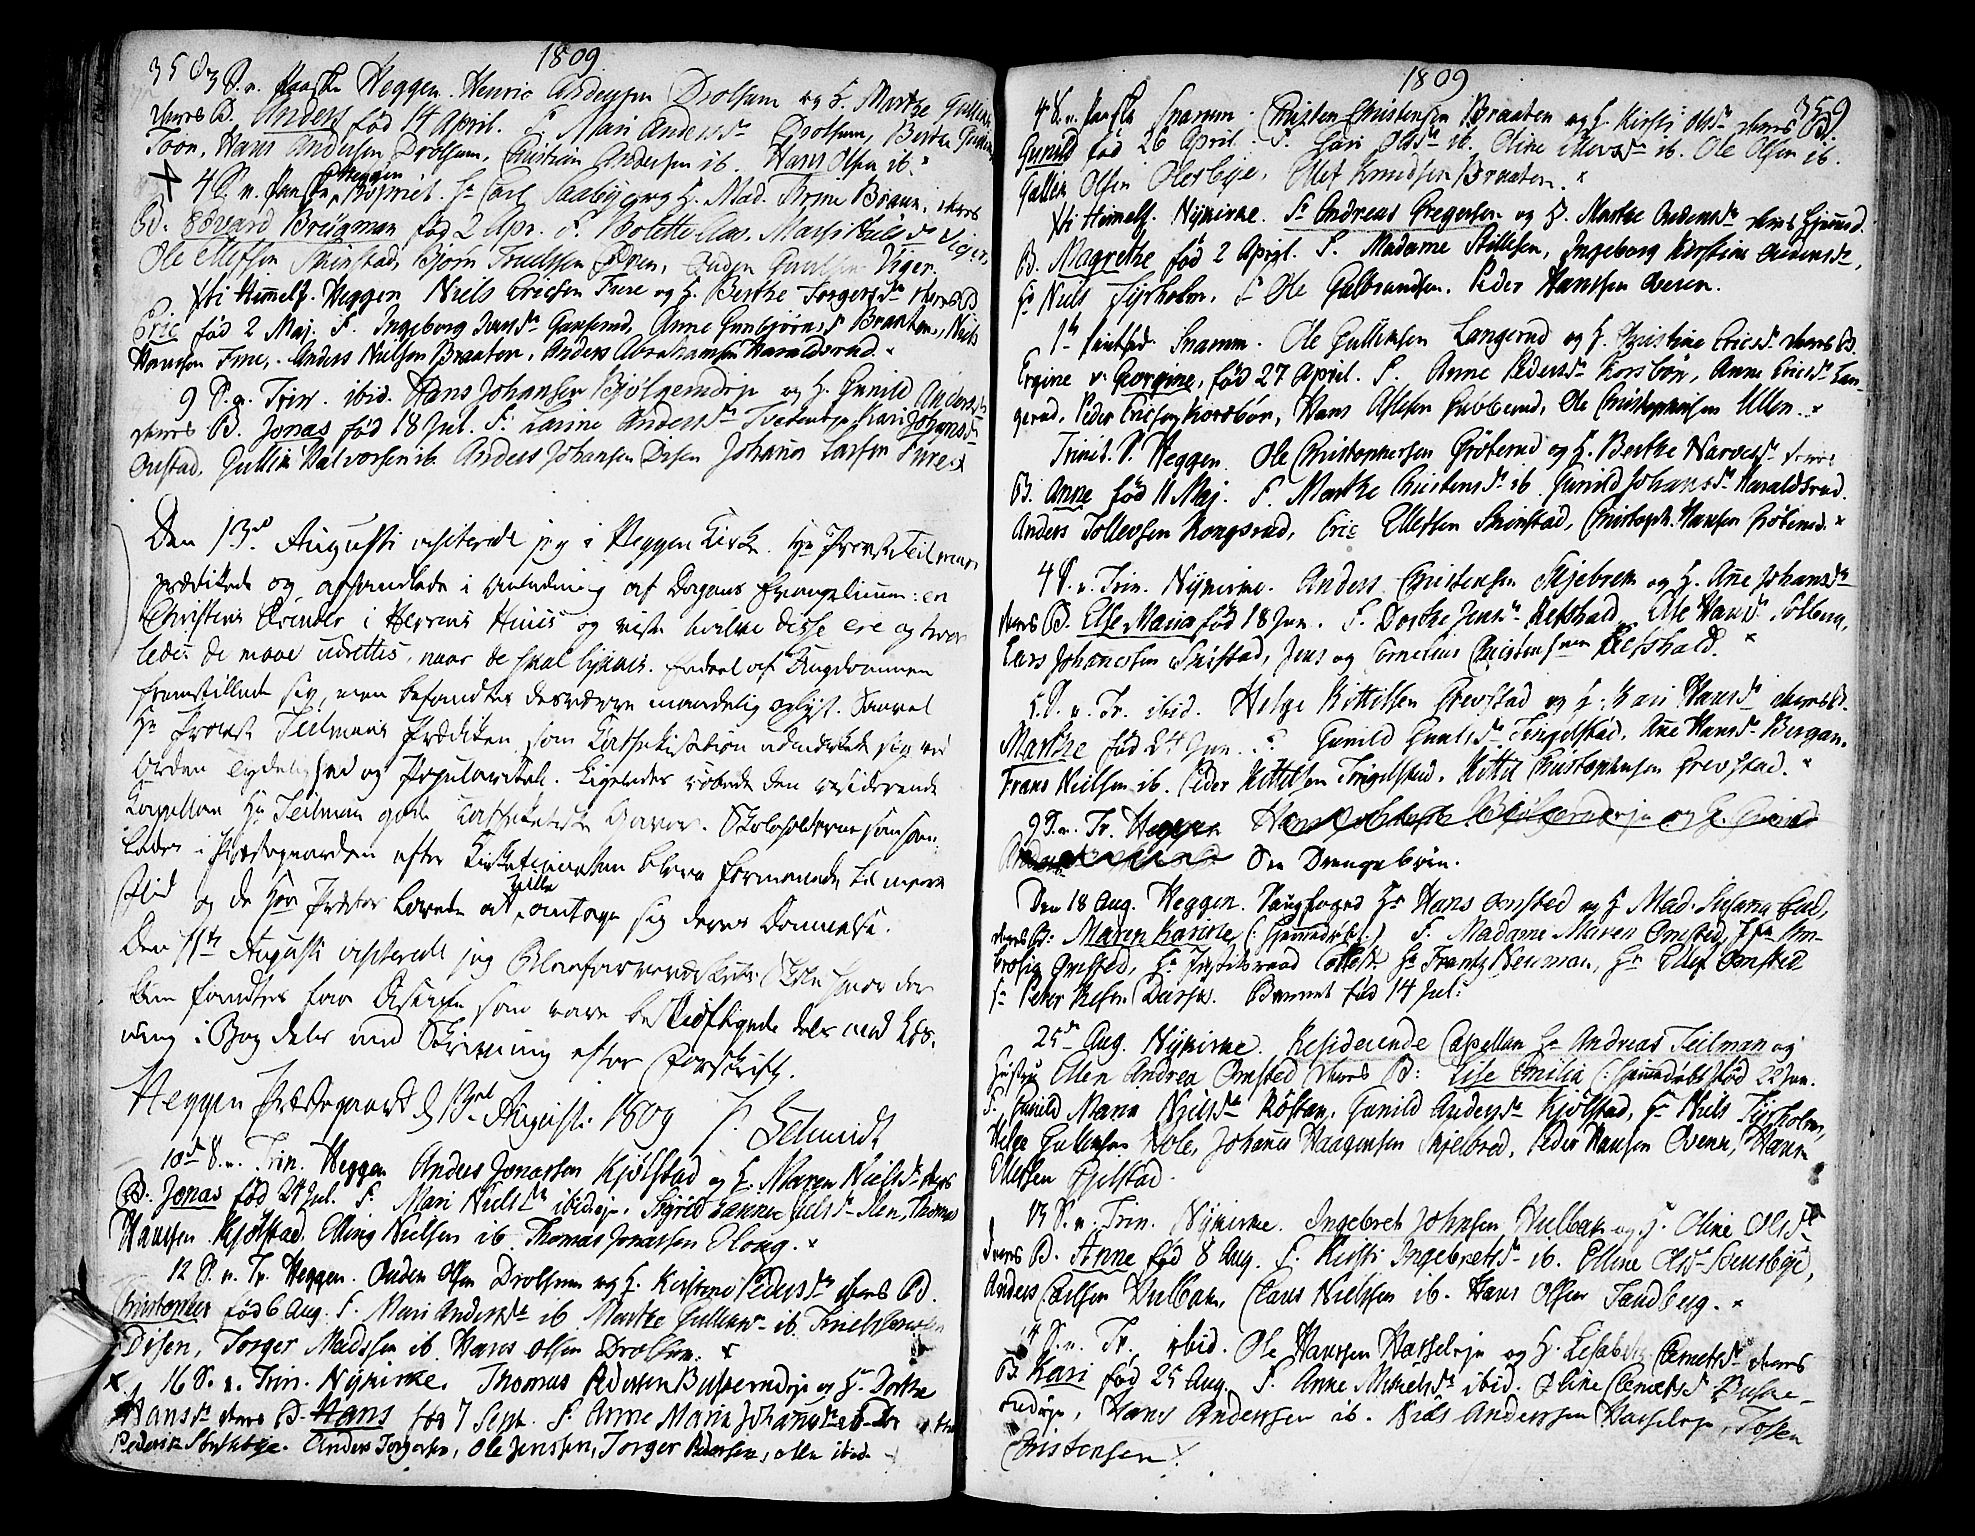 1809
358
3 S. v. Paaske Heggen. Henric Andersen Drolsum og H. Marthe Gullichs
deres B. Anders fød 14 April. F. Mari Andersdr Drolsum, Berthe
Toon, Hans Andersen Drolsum, Christian Andersen ib. Hans Olsen ib.
4 S. v. Paaske Heggen Hr Carl Saabye og H. Mad. Anne Braun, deres
B. Edvard Brügman fød 2 Apr. F. Bolette Mari Nielsdr Viger,
Ole Ellefsen Skinstad, Bjørn Truelssen Øpen, Auden Viger.
Xti Himelf. Heggen Niels Ericsen Fure og H. Berthe Torgersdr deres B.
Eric fød 2 Maj. F. Ingeborg Jensdr Gunserud, Anne Gunbjørnsdr Braaten, Niels
Hansen Fure, Anders Nielsen Braaten, Anders Abrahamsen Haraldsrud.
9 S. v. Trin. ibid. Hans Johansen Bjølgerudeje og H. Gunild Andersdr
deres B. Jonas fød 18 Jul. F. Karine Andersdr Kari Johansdr
Onstad, Gullik Halvorsen ib. Anders Johansen Disen Johannes Larsen Fure
Den 13de Augusti visiterede jeg i Heggen Kirke. Hr Provst Teilman
prædikede og afhandlede i Anledning af Dagens Evangelium: en
Christens Ærender i Herrens Huus og viste hvilke disse ere og hvor-
ledes de maae udrettes, naar de skal lykkes. Endeel af Ungdommen
fremstillede sig, men befandtes desværre maadelig oplyst. Saavel
Hr Provst Teilmans Prædiken som Cathechisation udmærkede sig ved
Orden Tydelighed og Popularitet. Ligeledes røbede den residerende
Kapellan Hr Teilman gode Cathechetiske Gaver. Skoleholderne
lades i Præstegaarden efter Kirketjenesten bleve formanede til mere
Flid og de Herr Præster lovede at ville antage sig deres Dannelse.
Den 11te Augusti visiterede jeg Blaafarveværkets Skole hvor der
kun fandtes faa Disciple som vare beskjæftigede dels med Læs-
ning i Bog dels med Skrivning efter Forskrift.
Heggen Præstegaard d 13de Augusti 1809 F. Schmidt
10de S. v. Trin. Heggen Anders Jonassen Kjølstad og H. Maren Nielsdr deres
B. Jonas fød 24 Jul. F. Mari Nielsdr ibideje. Sigrid Nielsdr Thomas
Hanssen Kjølstad, Elling Nielsen ib. Thomas Jonassen Elong.
12 S. v. Tr. Heggen. Auden Olsen Drolsum og H. Kirstine Pedersdr deres B.
Christopher fød 6 Aug. F. Mari Andersdr ib Marthe Gullicksdr ib.
Disen, Torger Madssen ib Hans Olsen Drolsum.
16 S. v. Trin. Nykirke. Thomas Pedersen Buskerudeje og H. Dorthe
Hansdr deres B. Hans fød 7 Sept. F. Anne Maria Johansdr ib
Anders Torgersen, Ole Jenssen, Torger Pedersen, alle ibid
1809
359
4 S. v. Paaske Snarum. Christen Christensen Braaten og H. Kirsti Olsdr deres B.
Gunild fød 26 April. F. Gari Olsdr ib. Oline ib. Ole Olsen ib.
Gullik Olsen Olerbye, Ellet Knudsen Braaten.
Xti Himelf. Nykirke. Sr Andreas Gregersen og H. Marthe Andersdr deres hjemmed.
B. Magrethe fød 2 April. F. Madame Stillesen, Ingeborg Kirstine Andersdr,
Hr Niels Tyrholm, Sr Ole Gulbrandsen. Peder Hanssen Overn.
1ste Pintsed. Snarum. Ole Gullicksen Langerud og H. Christine Ericsdr deres B.
Ergine v. Gorgine, fød 27 April. F. Anne Pedersdr Korsbøn, Anne Ericsdr Lan-
gerud, Peder Ericsen Korsbøn, Hans Aslesen Gubberud, Ole Christophersen Ullern.
Trinit. S. Heggen. Ole Christophersen Grøterud og H. Berthe Narvesdr deres
B. Anne fød 11 Maj. F. Marthe Christensdr ib. Gunild Johansdr Haraldsrud.
Anders Tollevsen Kongsrud, Eric Ellefsen Skinstad, Christoph. Hansen Grøterud.
4 S. v. Trin. Nykirke. Anders Christensen Skjebrek og H. Ane Johansdr
deres B. Else Maria fød 18 Jun. F. Dorthe Jensdr Refshald, Else Hansdr Solberg,
Lars Johannessen Skistad, Jens og Cornelius Christensen Refshald.
5. S. v. Tr. ibid. Helge Kittilsen Grevstad og H. Kari Hansdr deres B.
Marthe fød 24 Jun. F. Gunild Tingelstad, Ane Hansdr Bergan.
Frans Nielsen ib. Peder Kittilsen Tingelstad, Kittil Christophersen Grevstad.
9 S. v. Tr. Heggen Hans Johansen Bjølgerudeje og H. Gunild
Andersdr See Drengebørn.
Den 18 Aug. Heggen. Hr Hans Omsted og H. Mad. Susana
deres B: Maren Karine (: hjemmedøbt :) F. Madame Maren Omsted, Am-
brosia Omsted, Hr Justitsraad Collett Hr Frantz Neuman, Hr Ellef Omsted
Sr Peter Barnet fød 14 Jul:
25de Aug. Nykirke. Residerende Capellan Hr Andreas Teilman og
Hustru Elen Andrea Omsted deres B: Lise Emilia (: hjemmedøbt fød 22 Jun.
F. Gunild Maria Nielsdr Røstan, Gunild Andersdr Kjølstad, Hr Niels Tyrholm,
Helge Gullicksen Hole, Johannes Haagensen Skjelbred, Peder Hansen Overn, Hans
Ellefsen Gjelstad.
13 S. v. Trin. Nykirke. Ingebret Johnsen Hulbak og H. Oline Olsdr
deres B. Anne fød 8 Aug. F. Kirsti Ingebretsdr ib. Elline Olsdr
Anders Carlsen Hulbak, Claus Nielssen ib. Hans Olssen Sandberg.
14 S. v. Tr, ibid. Ole Hanssen Hasseleje og H. Lisabeth Clemetsdr deres
B. Kari fød 25 Aug. F. Anne Mikelsdr ibid. Oline Clemetsdr Buske-
rudeje, Hans Anderssen ib. Niels Anderssen Hasseleje,
Christensen